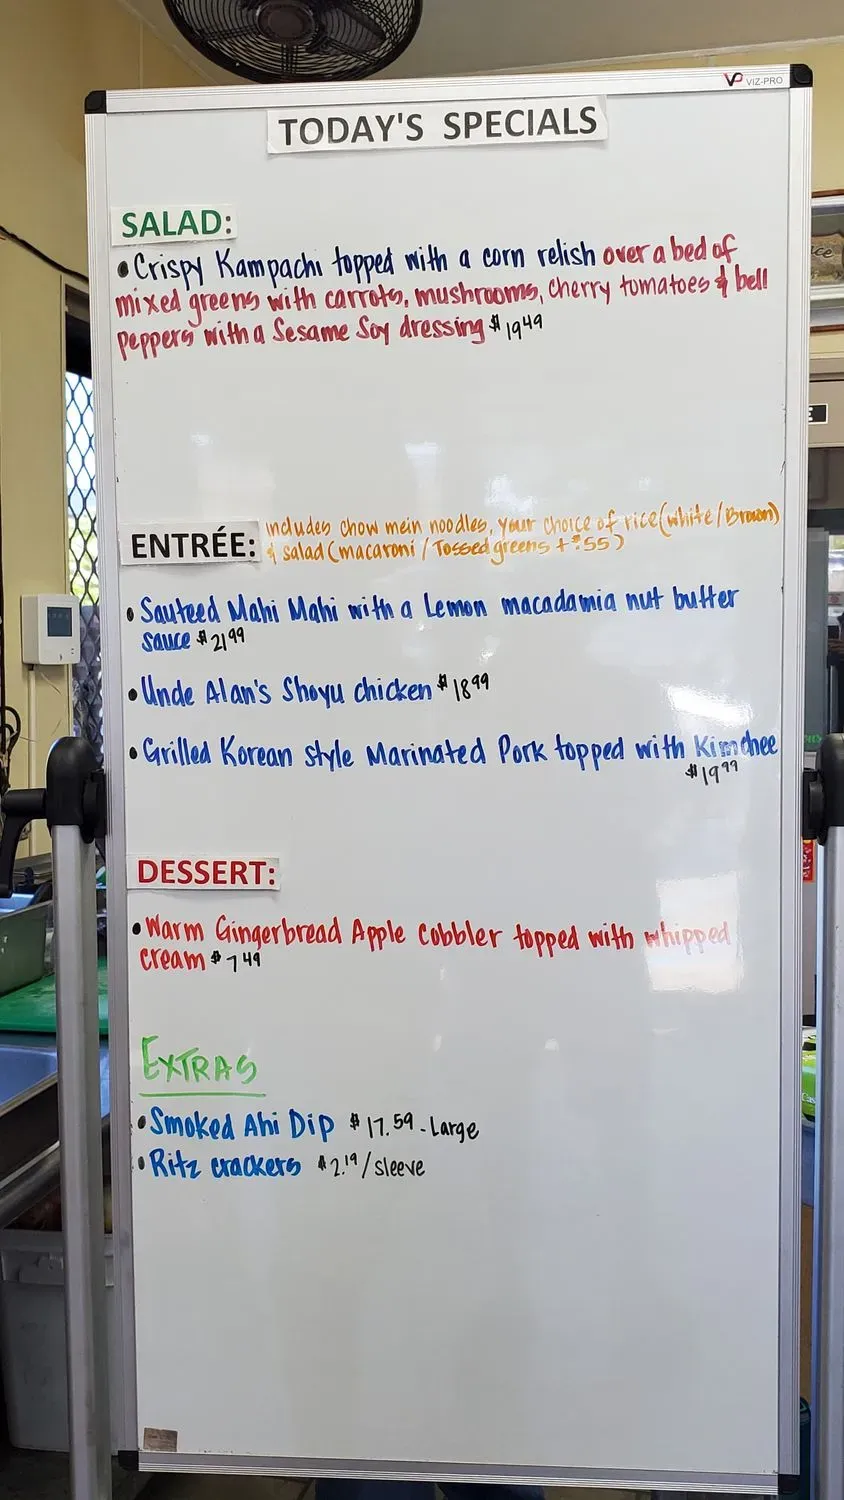 VP VIZ-PRO
TODAY'S SPECIALS
SALAD:
• Crispy Kampachi topped with a corn relish over a bed of
mixed greens with carrots, mushrooms, cherry tomatoes & bell
peppers with a Sesame Soy dressing $19.49
ENTRÉE: includes chow mein noodles, your choice of rice (white/Brown)
& salad (macaroni / Tossed greens + $.55)
• Sauteed Mahi Mahi with a Lemon macadamia nut butter
sauce $21.99
• Uncle Alan's Shoyu chicken $18.99
• Grilled Korean style Marinated Pork topped with Kimchee
$19.99
DESSERT:
• Warm Gingerbread Apple Cobbler topped with whipped
cream $7.49
EXTRAS
• Smoked Ahi Dip $17.59 - Large
• Ritz crackers $2.19/sleeve